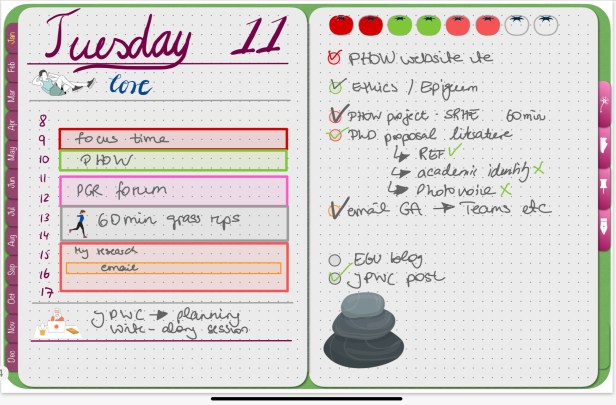 Tuesday 11
Core
8
9 focus time
10 PHOW
11
12 PGR forum
13 60min grass reps
14
15 My research
16 email
17
JPWC → planning
write-along session
PHOW website
Ethics / Epigeum
PHOW project - SRHE 60min
PhD proposal literature
↳ REF ✓
↳ academic identity X
↳ Photovoice X
email GA → Teams etc
EGU blog
JPWC post
Jan
Feb
Mar
Apr
May
Jun
Jul
Aug
Sep
Oct
Nov
Dec